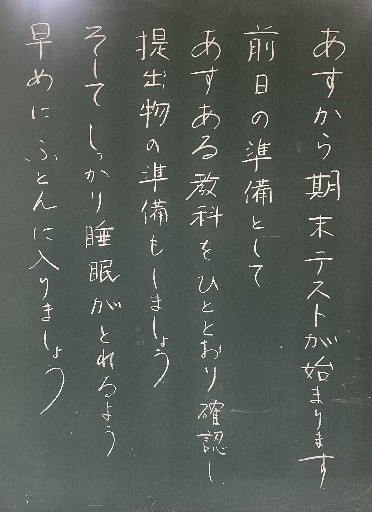 あすから期末テストが始まります
前日の準備として
あすある教科をひととおり確認し
提出物の準備もしましょう
そしてしっかり睡眠がとれるよう
早めにふとんに入りましょう